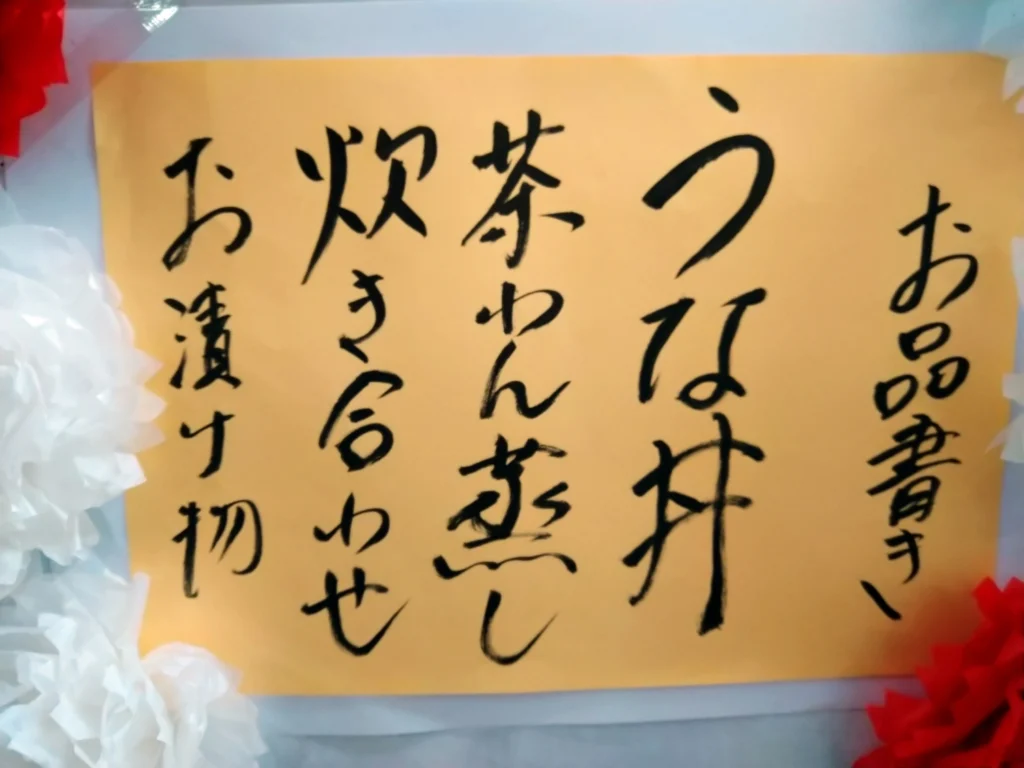 お品書き
うな丼
茶わん蒸し
炊き合わせ
お漬け物